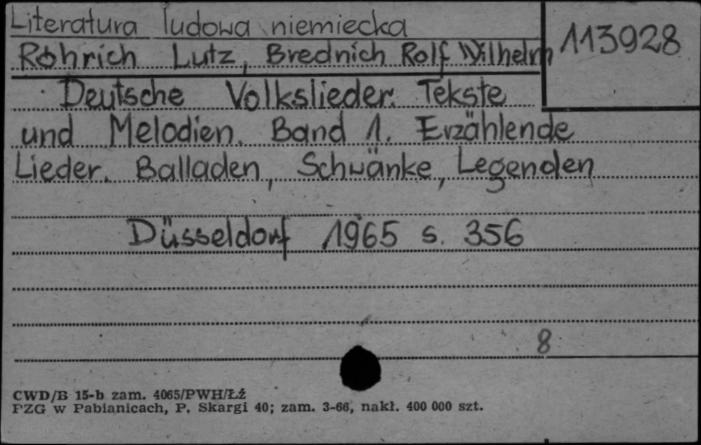 Literatura ludowa niemiecka
113928
Röhrich Lutz, Brednich Rolf Wilhelm
Deutsche Volkslieder. Tekste
und Melodien. Band 1. Erzählende
Lieder. Balladen, Schwänke, Legenden
Düsseldorf 1965 s. 356
8
CWD/B 15-b zam. 4065/PWH/Łź
PZG w Pabianicach, P. Skargi 40; zam. 3-66, nakł. 400 000 szt.